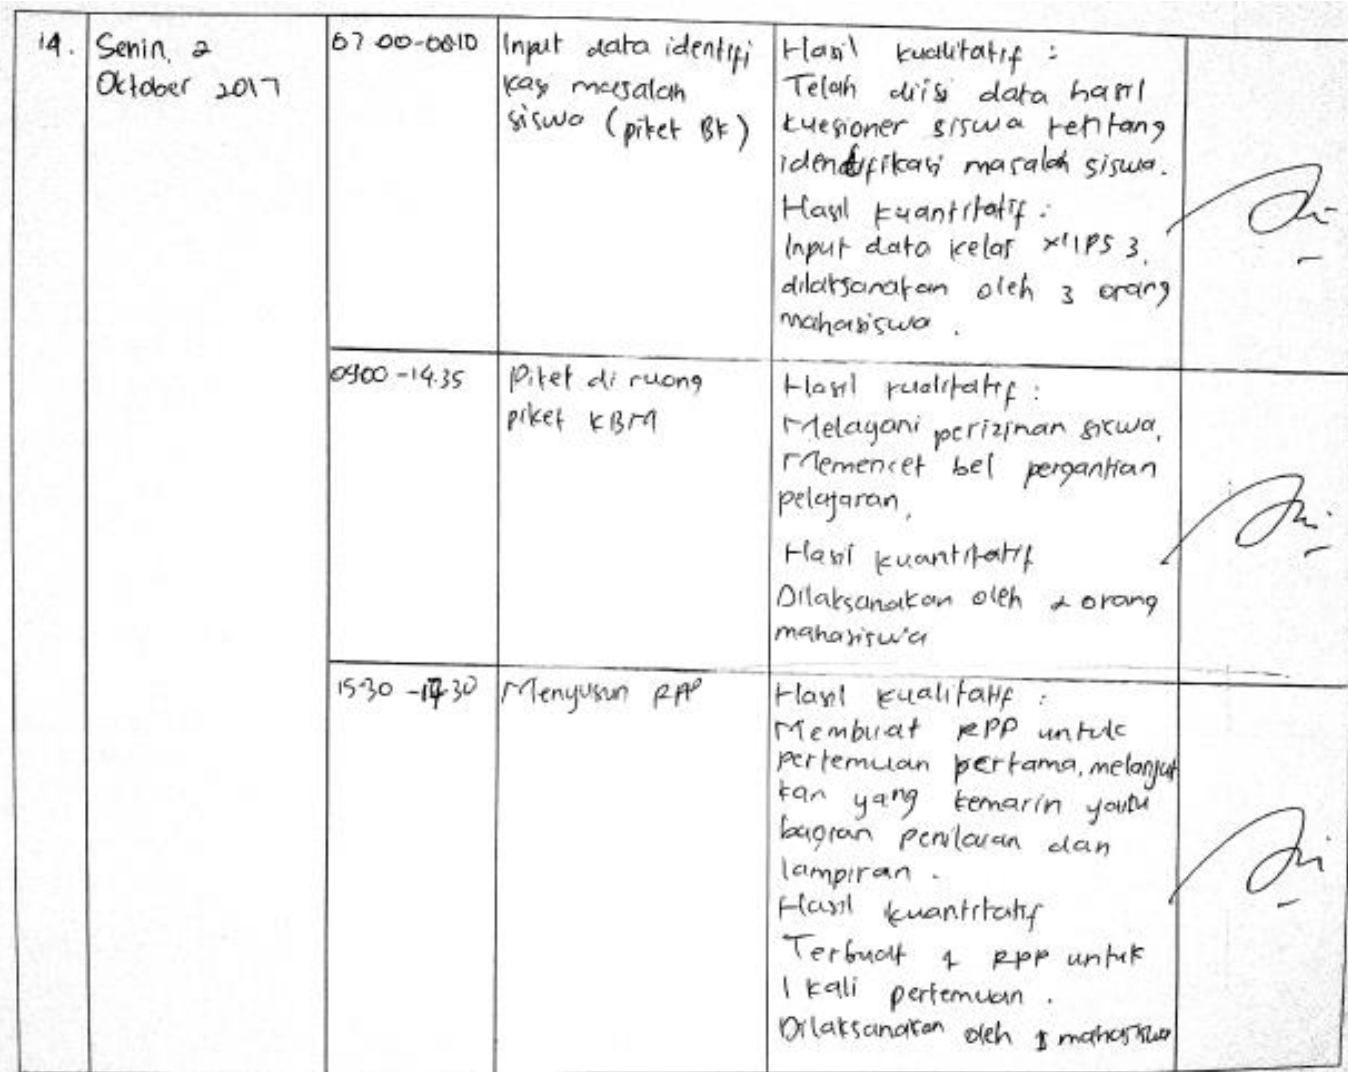 14.
Senin, 2
Oktober 2017
07.00-08.10
Input data identifi
kasi masalah
siswa (piket BK)
Hasil kualitatif :
Telah diisi data hasil
kuesioner siswa tentang
identifikasi masalah siswa.
Hasil kuantitatif :
Input data kelas XI IPS 3.
dilaksanakan oleh 3 orang
mahasiswa .
09.00 - 14.35
Piket di ruang
piket KBM
Hasil kualitatif :
Melayani perizinan siswa,
Memencet bel pergantian
pelajaran,
Hasil kuantitatif
Dilaksanakan oleh 2 orang
mahasiswa
15.30 - 17.30
Menyusun RPP
Hasil kualitatif :
Membuat RPP untuk
pertemuan pertama, melanjut
kan yang kemarin yaitu
bagian penilaian dan
lampiran .
Hasil kuantitatif
Terbuat 1 RPP untuk
1 kali pertemuan .
Dilaksanakan oleh 1 mahasiswa